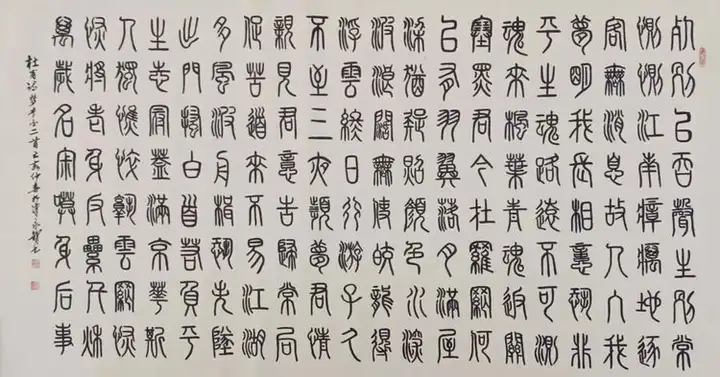 死别已吞聲生别常
惻惻江南瘴癘地逐
客無消息故人入我
夢明我長相憶恐非
平生魂路遠不可測
魂來楓葉青魂返關
塞黑君今在羅網何
以有羽翼落月滿屋
梁猶疑照顏色水深
波浪闊無使蛟龍得
浮雲終日行游子久
不至三夜頻夢君情
親見君意告歸常局
促苦道來不易江湖
多風波舟楫恐失墜
出門搔白首若負平
生志冠蓋滿京華斯
人獨憔悴孰雲網恢
恢將老身反纍千秋
萬歲名寂寞身后事
杜甫詩夢李白二首己亥仲春於